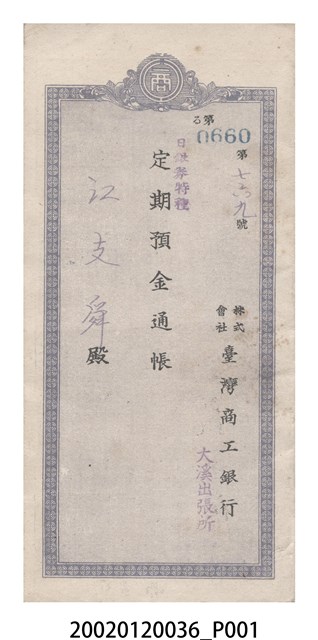 商
る第
0660
第七六九號
日銀券特種
定期預金通帳
江支舜殿
株式會社臺灣商工銀行
大溪出張所
20020120036_P001